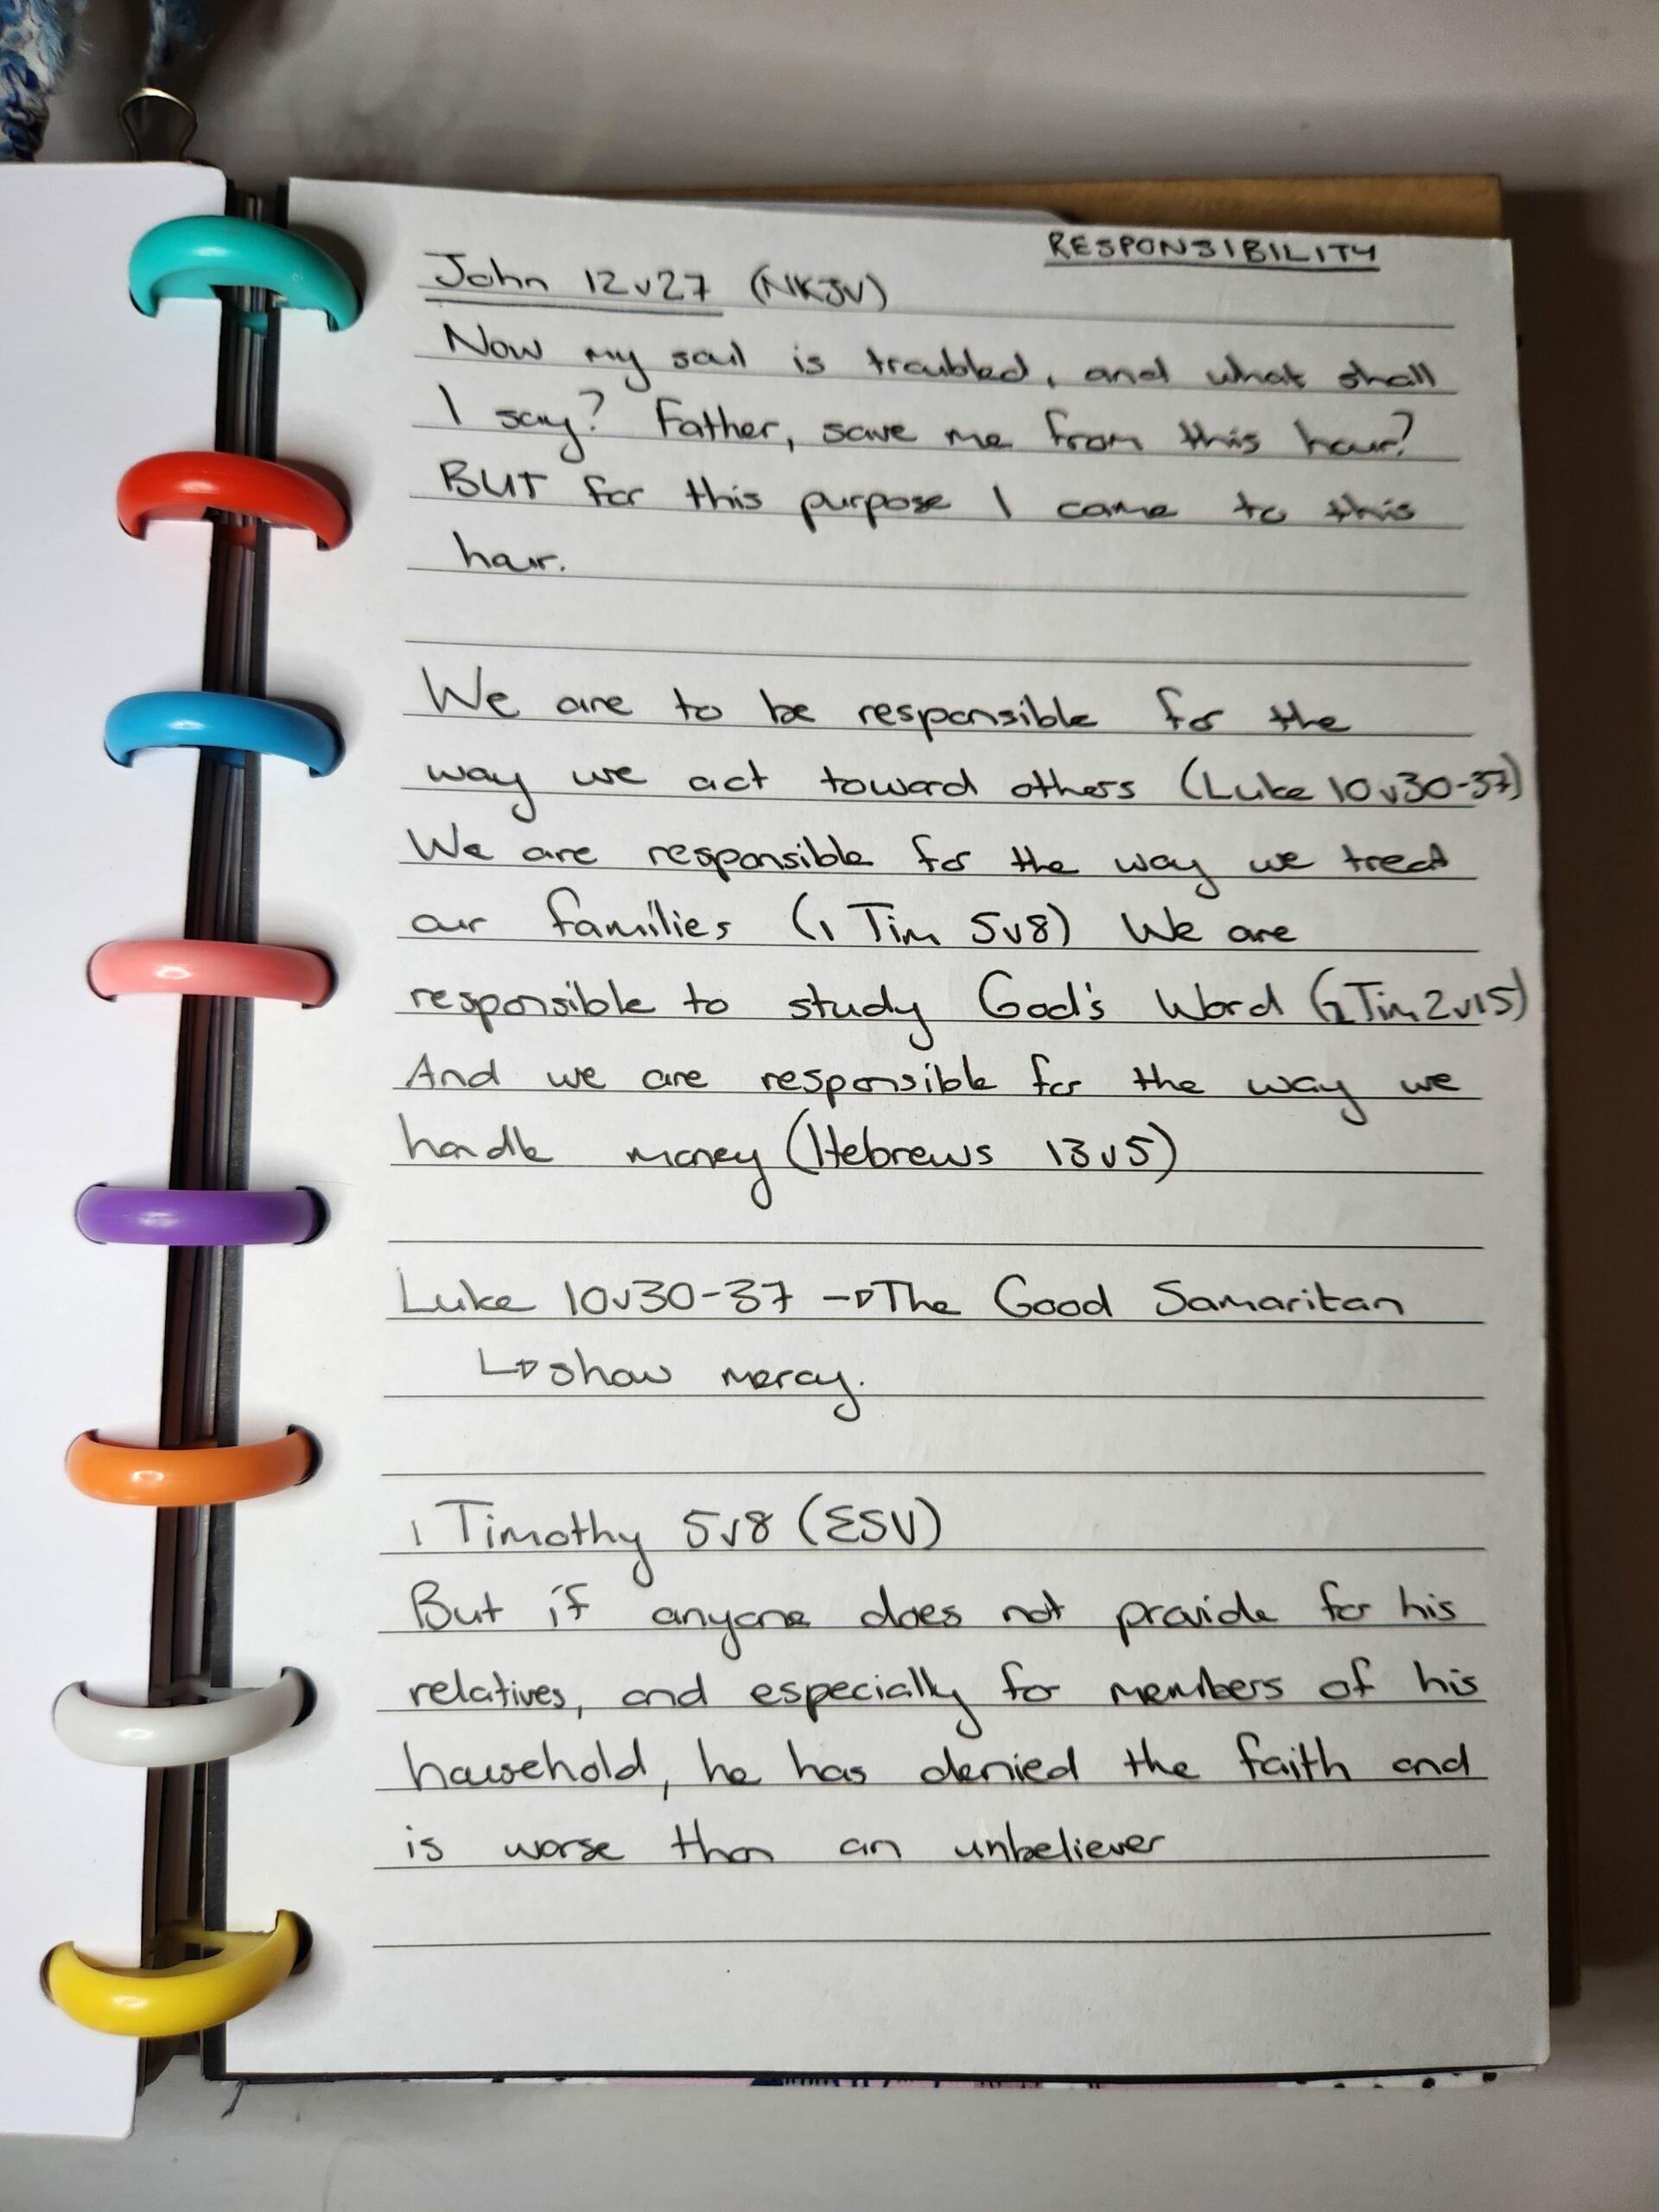 RESPONSIBILITY
John 12v27 (NKJV)
Now my soul is troubled, and what shall
I say? Father, save me from this hour?
BUT for this purpose I came to this
hour.
We are to be responsible for the
way we act toward others (Luke 10v30-37)
We are responsible for the way we treat
our families (1 Tim 5v8) We are
responsible to study God's Word (2 Tim 2v15)
And we are responsible for the way we
handle money (Hebrews 13v5)
Luke 10v30-37 → The Good Samaritan
↳ show mercy.
1 Timothy 5v8 (ESV)
But if anyone does not provide for his
relatives, and especially for members of his
household, he has denied the faith and
is worse than an unbeliever